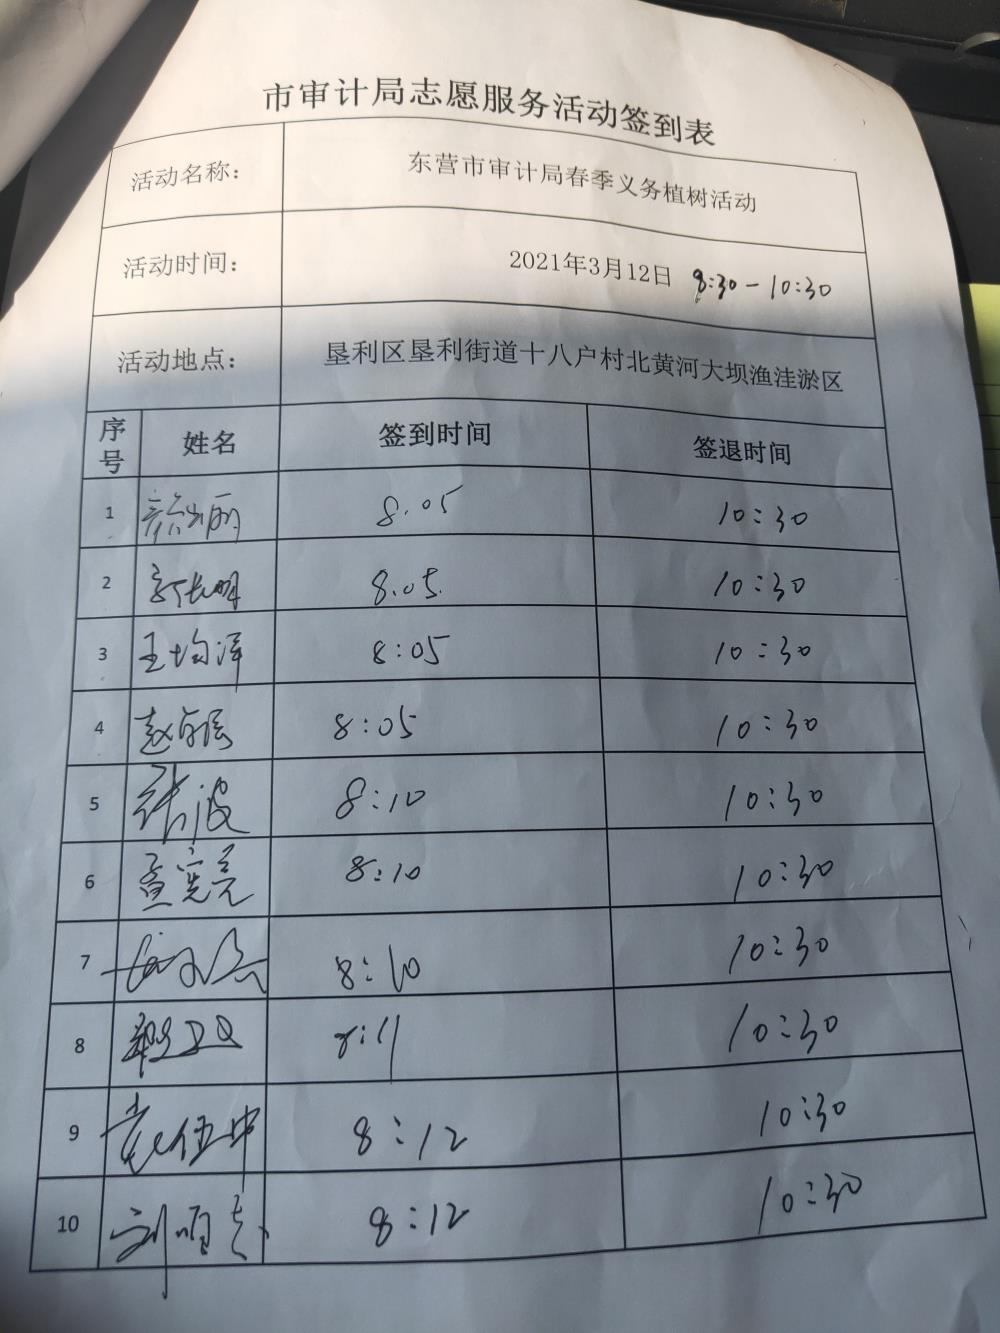 市审计局志愿服务活动签到表
活动名称： 东营市审计局春季义务植树活动
活动时间： 2021年3月12日 8:30-10:30
活动地点： 垦利区垦利街道十八户村北黄河大坝渔洼淤区
序号 姓名 签到时间 签退时间
1 8.05 10:30
2 8.05. 10:30
3 王均泽 8:05 10:30
4 8:05 10:30
5 张波 8:10 10:30
6 孟宪亮 8:10 10:30
7 8:10 10:30
8 8:11 10:30
9 8:12 10:30
10 8:12 10:30